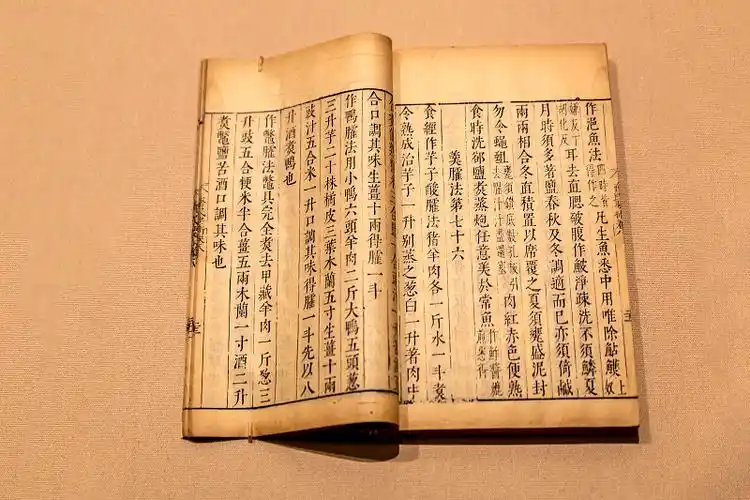 作浥魚法四時皆得作之凡生魚悉中用唯除鮎鱯上奴
嫌反下胡化反耳去直腮破腹作鮍淨疎洗不須鱗夏
月時須多著鹽春秋及冬調適而已亦須倚鹹
兩兩相合冬直積置以席覆之夏須甕盛泥封
勿令蠅蛆甕須鑽底數孔拔引去腥汁汁盡還塞肉紅赤色便熟
食時洗却鹽煑蒸炮任意美於常魚作鮓醬爊煎悉得
羹臛法第七十六
食經作芋子酸臛法猪羊肉各一斤水一斗煑
令熟成治芋子一升別蒸之葱白一升著肉中
合口調其味生薑十兩得臛一斗
作鴨臛法用小鴨六頭羊肉二斤大鴨五頭葱
三升芋二十株橘皮三葉木蘭五寸生薑十兩
豉汁五合米一升口調其味得臛一斗先以八
升酒煑鴨也
作鼈臛法鼈具完全煑去甲藏羊肉一斤葱三
升豉五合粳米半合薑五兩木蘭一寸酒二升
煑鼈鹽苦酒口調其味也